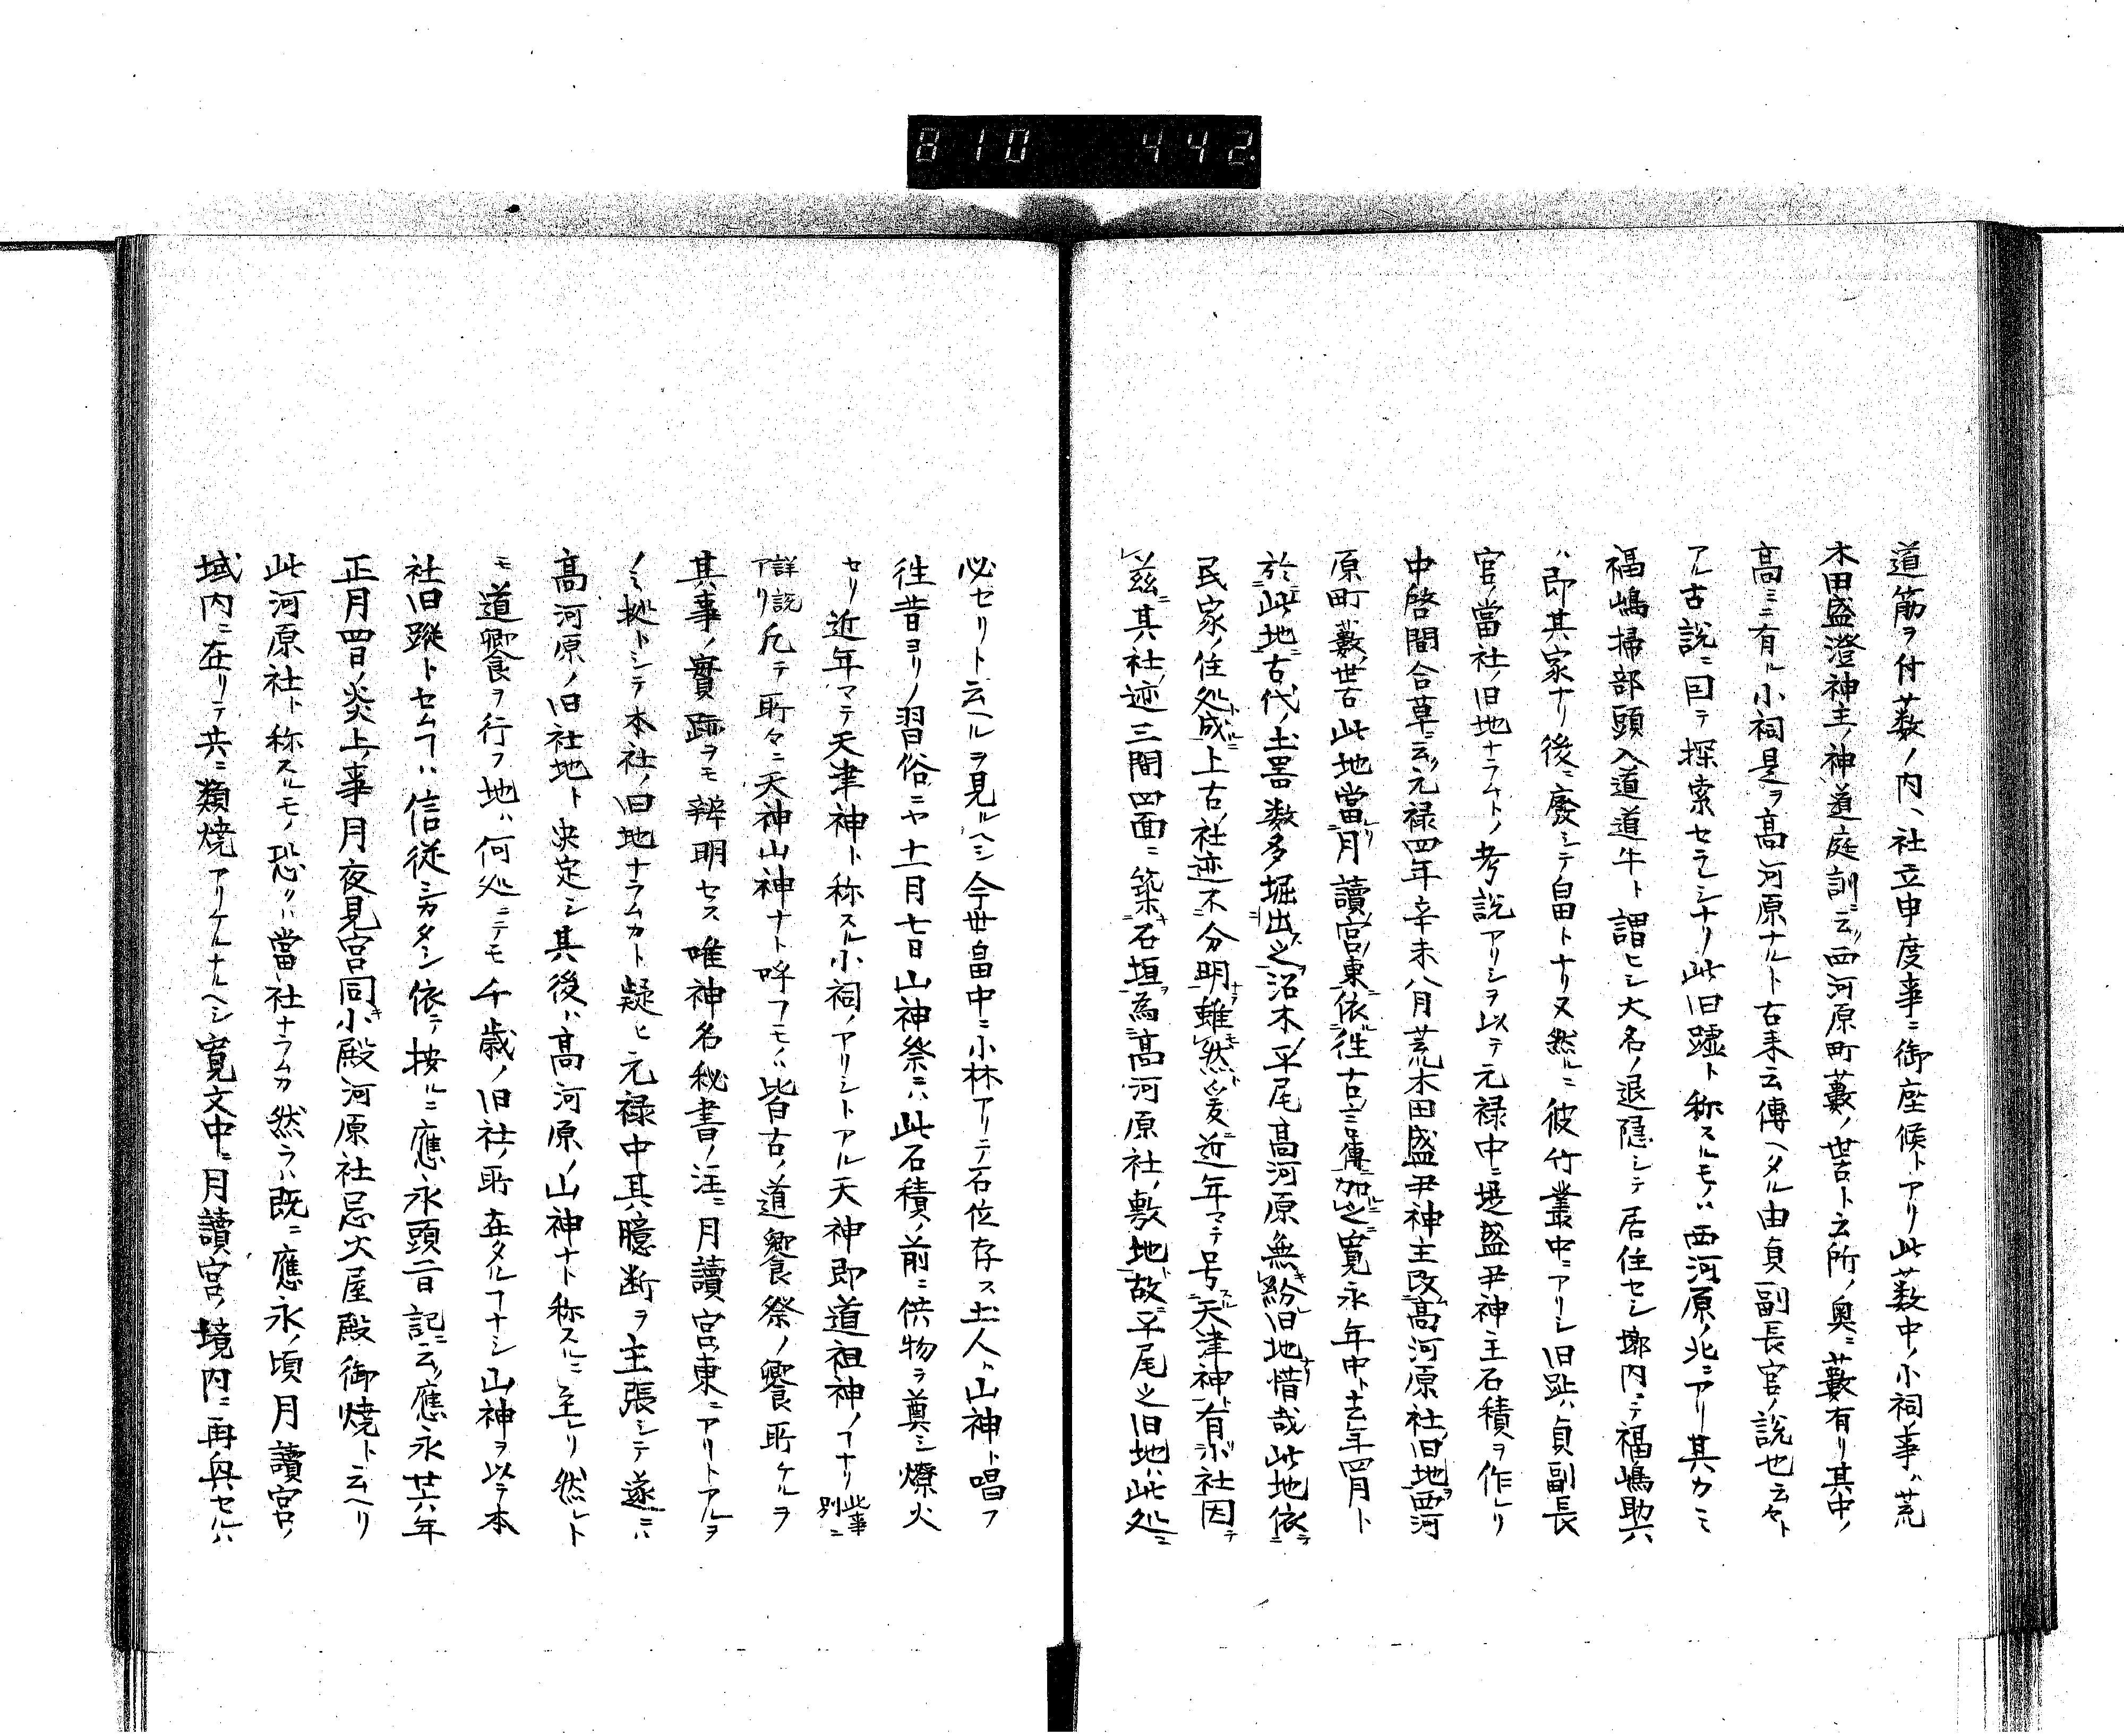 810 442.
道筋ヲ付薮ノ内、社立申度事ニ御座候トアリ此薮中ノ小祠事ハ荒
木田盛澄神主ノ神道庭訓ニ云ク西河原町藪ノ世古ト云所ノ奥ニ藪有リ其中ノ
高ミニ有ル小祠是ヲ高河原ナルト古来云傳ヘタル由貞副長官ノ説也云々ト
アル古説ニ因テ探索セラレシナリ此旧墟ト称スルモノハ西河原ノ北ニアリ其カミ
福嶋掃部頭入道道牛ト謂ヒシ大名ノ退隠シテ居住セシ墎内ニテ福嶋助六
ハ即其家ナリ後ニ廢シテ畠トナリ又然ルニ彼竹叢中ニアリシ旧趾ハ貞副長
官ノ當社ノ旧地ナラムトノ考説アリシヲ以テ元禄中ニ是盛尹神主石積ヲ作レリ
中啓間合草ニ云ク元禄四年辛未八月荒木田盛尹神主改高河原社ノ旧地ヲ西河
原町藪ノ世古此地當月讀宮ノ東ニ依往古ノ言傳ニ加之寛永年中ト去年四月ト
於此地ニ古代ノ土器数多堀出之沼木ノ平尾高河原無紛旧地惜哉此地依テ
民家ノ住処成ニ上古ノ社迹不分明雖然爰近年マテ号スル天津神ト有小社因テ
茲其社ノ迹三間四面ニ築キ石垣ヲ為高河原社ノ敷地ト故ニ平尾之旧地ハ此処ニ
必セリト云ヘルヲ見ルヘシ今世畠中ニ小林アリテ石位存ス土人ハ山神ト唱フ
往昔ヨリノ習俗ニヤ十一月七日山神祭ニハ此石積ノ前ニ供物ヲ奠シ燎火
セリ近年マテ天津神ト称スル小祠ノアリシトアル天神即道祖神ノヿナリ此事別ニ
詳説アリ凡テ所々ニ天神山神ナト呼フモノハ皆古ノ道饗祭ノ饗所ケルヲ
其事ノ實跡ヲモ辨明セス唯神名秘書ノ注ニ月讀宮ノ東ニアリトアルヲ
ノミ拠トシテ本社ノ旧地ナラムカト疑ヒ元禄中其臆断ヲ主張シテ遂ニハ
高河原ノ旧社地ト決定シ其後ハ高河原ノ山神ナト称スルニ至レリ然レト
モ道饗ヲ行フ地ハ何処ニテモ千歳ノ旧社ノ所在タルヿナシ山神ヲ以テ本
社旧蹤トセムヿハ信従シカタシ依テ按ルニ應永頭工日記ニ云ク應永廿六年
正月四日ノ炎上ノ事月夜見宮同小殿河原社忌火屋殿御焼ト云ヘリ
此河原社ト称スルモノ恐クハ當社ナラムカ然ラハ既ニ應永ノ頃月讀宮ノ
域内ニ在リテ共ニ類焼アリケルナルヘシ寛文中ニ月讀宮ノ境内ニ再興セルハ